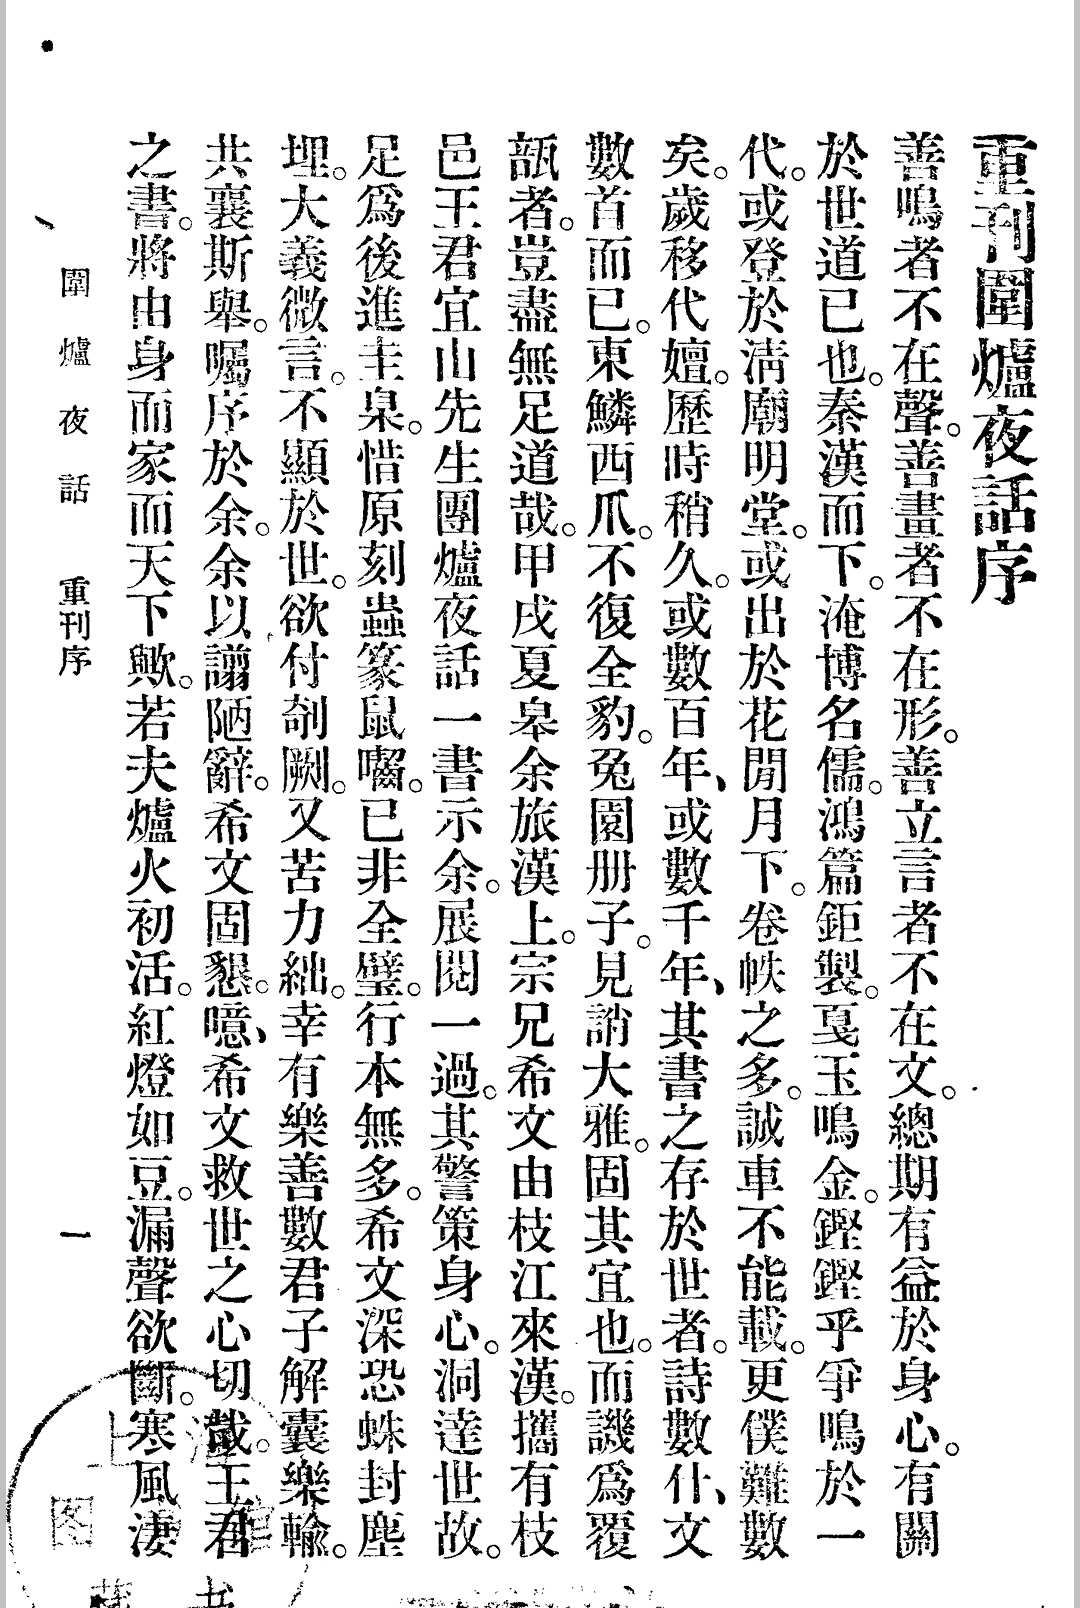 重刊圍爐夜話序
善鳴者不在聲。善畫者不在形。善立言者不在文。總期有益於身心。有關
於世道已也。秦漢而下。淹博名儒。鴻篇鉅製。戛玉鳴金。鏗鏗乎爭鳴於一
代。或登於淸廟明堂。或出於花間月下。卷帙之多。誠車不能載。更僕難數
矣。歲移代嬗。歷時稍久。或數百年、或數千年、其書之存於世者。詩數什、文
數首而已。東鱗西爪。不復全豹。兔園册子。見誚大雅。固其宜也。而譏爲覆
瓿者。豈盡無足道哉。甲戌夏皋余旅漢上。宗兄希文由枝江來漢。攜有枝
邑王君宜山先生圍爐夜話一書示余。展閱一過。其警策身心。洞達世故。
足爲後進圭臬。惜原刻蟲篆鼠嚙。已非全璧。行本無多。希文深恐蛛封塵
埋。大義微言。不顯於世。欲付剞劂。又苦力絀。幸有樂善數君子解囊樂輸。
共襄斯舉。囑序於余。余以謭陋辭。希文固懇。噫、希文救世之心切哉。王君
之書。將由身而家而天下歟。若夫爐火初活。紅燈如豆。漏聲欲斷。寒風淒
圍爐夜話 重刊序 一
上 图 館 藏 书